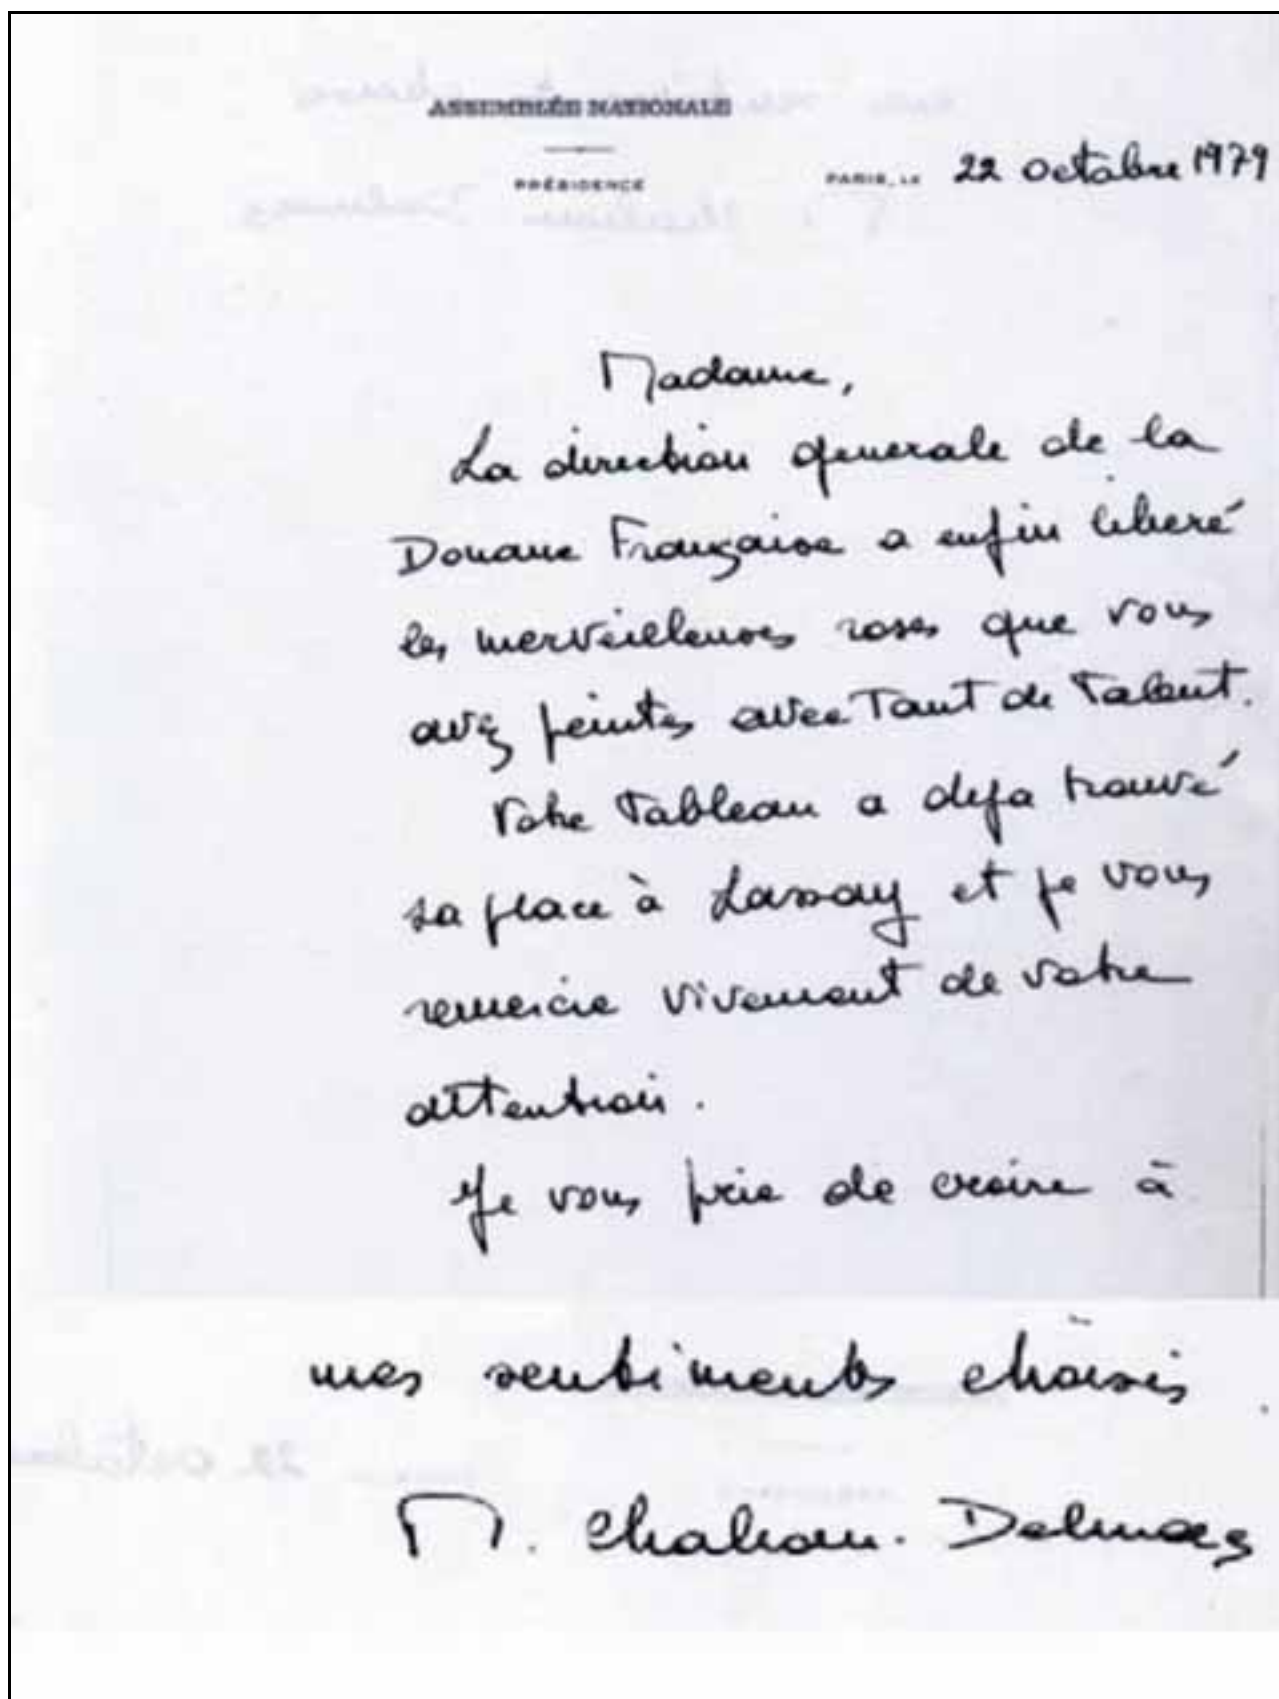 ASSEMBLÉE NATIONALE
PRÉSIDENCE
PARIS, LE 22 octobre 1979
Madame,
La direction generale de la
Douane Française a enfin libéré
les merveilleuses roses que vous
avez peintes avec Tant de Talent.
Votre Tableau a deja trouvé
sa place à Lassay et je vous
remercie vivement de votre
attention.
Je vous prie de croire à
mes sentiments choisis.
M. Chaban-Delmas